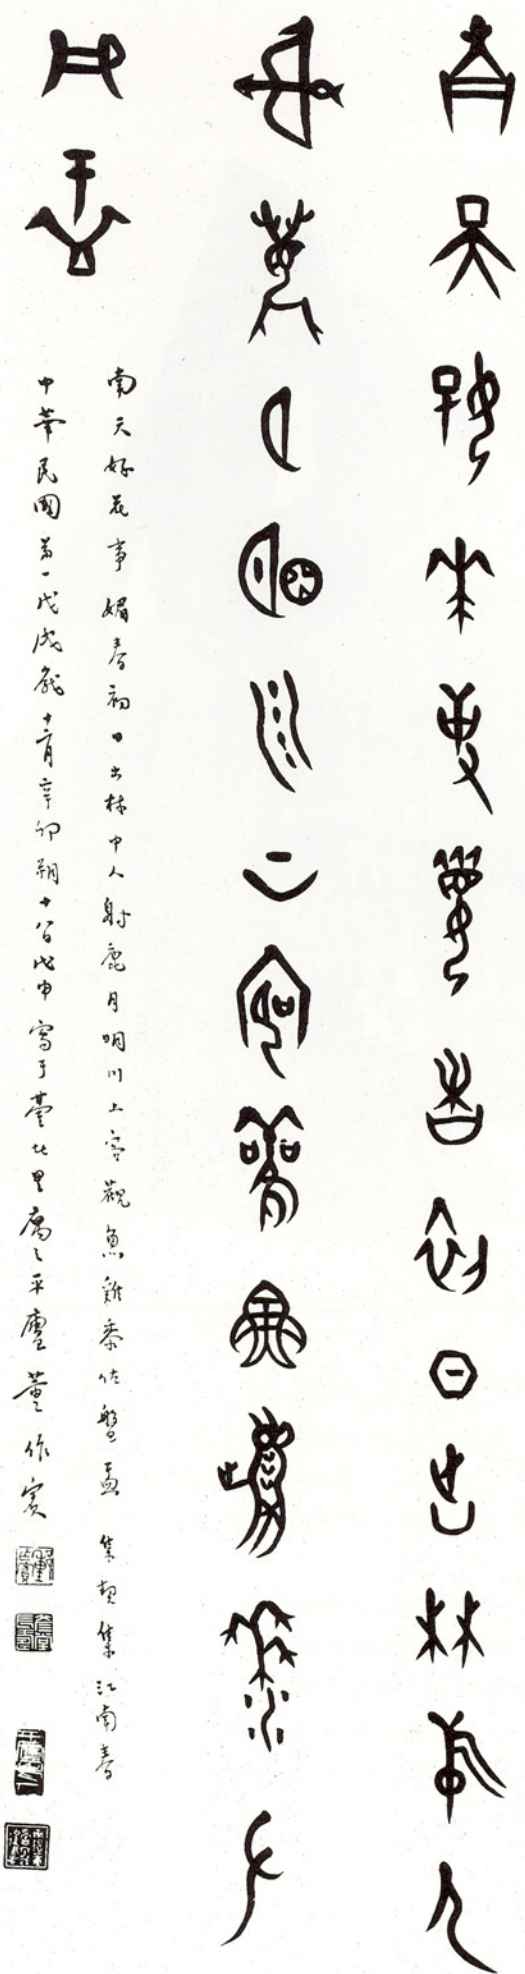 南天好花事媚春初日出林中人
射鹿月明川上客觀魚雞黍佐
盤盂
南天好花事媚春初日出林中人射鹿月明川上客觀魚雞黍佐盤盂 集契集江南春
中華民國第一戊戌歲十二月辛卯朔十八日戊申寫于臺北里膈之平廬 董作賓